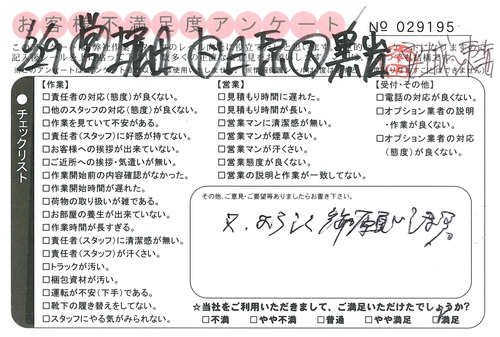 お客様不満足度アンケート
No 029195
【作業】
□責任者の対応(態度)が良くない。
□他のスタッフの対応(態度)が良くない。
□作業を見ていて不安がある。
□責任者(スタッフ)に好感が持てない。
□お客様への挨拶が出来ていない。
□ご近所への挨拶・気遣いが無い。
□作業開始前の内容確認がなかった。
□作業開始時間が遅れた。
□荷物の取り扱いが雑である。
□お部屋の養生が出来ていない。
□作業時間が長すぎる。
□責任者(スタッフ)に清潔感が無い。
□責任者(スタッフ)が汗くさい。
□トラックが汚い。
□梱包資材が汚い。
□運転が不安(下手)である。
□靴下の履き替えをしてない。
□スタッフにやる気がみられない。
【営業】
□見積もり時間に遅れた。
□見積もり時間が長い。
□営業マンに清潔感が無い。
□営業マンが煙草くさい。
□営業マンが汗くさい。
□営業態度が良くない。
□営業の説明と作業が一致してない。
【受付・その他】
□電話の対応が良くない。
□オプション業者の説明
・作業が良くない。
□オプション業者の対応
(態度)が良くない。
チェックリスト
その他、ご意見・ご要望等ありましたらお書き下さい。
又、よろしく御願いします
☆当社をご利用いただきまして、ご満足いただけたでしょうか?
□不満 □やや不満 □普通 □やや満足 □満足